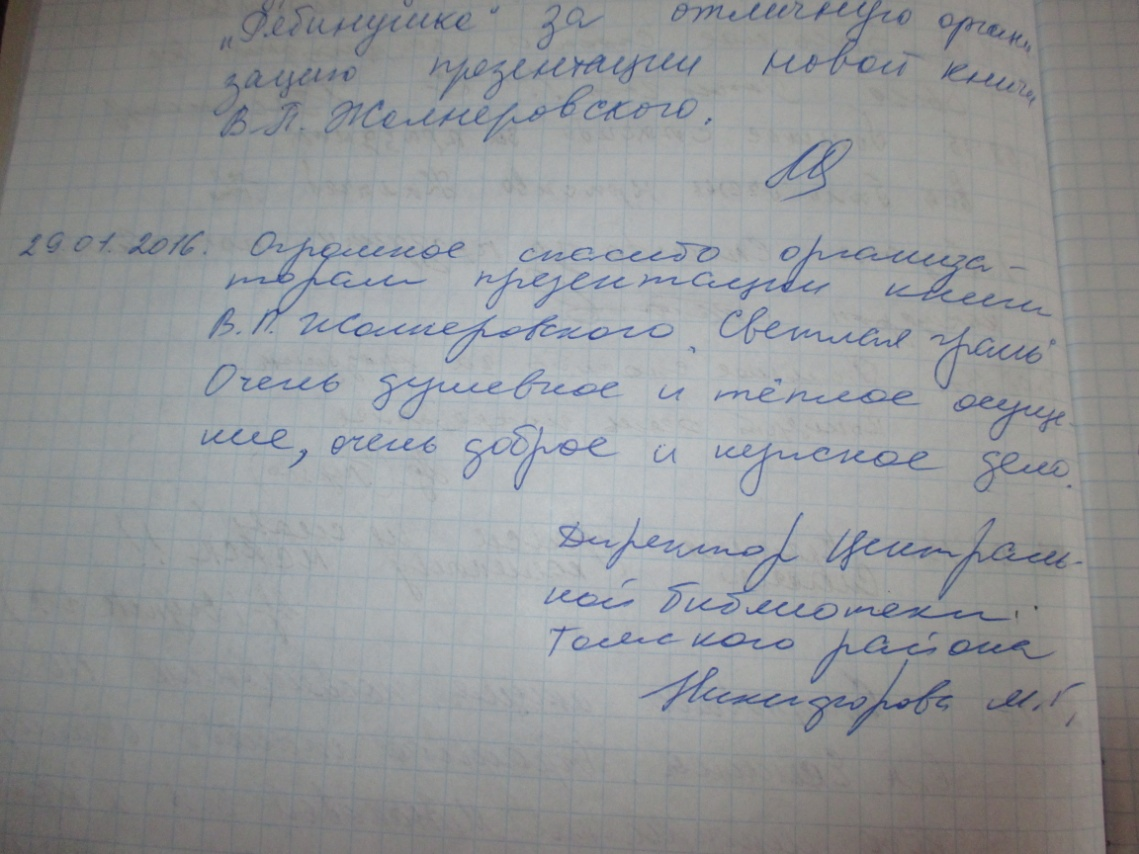 „Рябинушка" за отличную органи
зацию презентации новой книги
В.П. Жолнеровского.
29.01.2016. Огромное спасибо организа-
торам презентации книги
В.П. Жолнеровского „Светлая грань"
Очень душевное и тёплое ощуще-
ние, очень доброе и нужное дело.
Директор Централь-
ной библиотеки
Томского района
Никифорова М.Г.